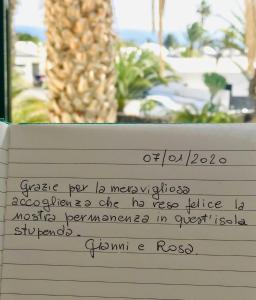 07/01/2020
Grazie per la meravigliosa
accoglienza che ha reso felice la
nostra permanenza in quest'isola
stupenda.
Gianni e Rosa